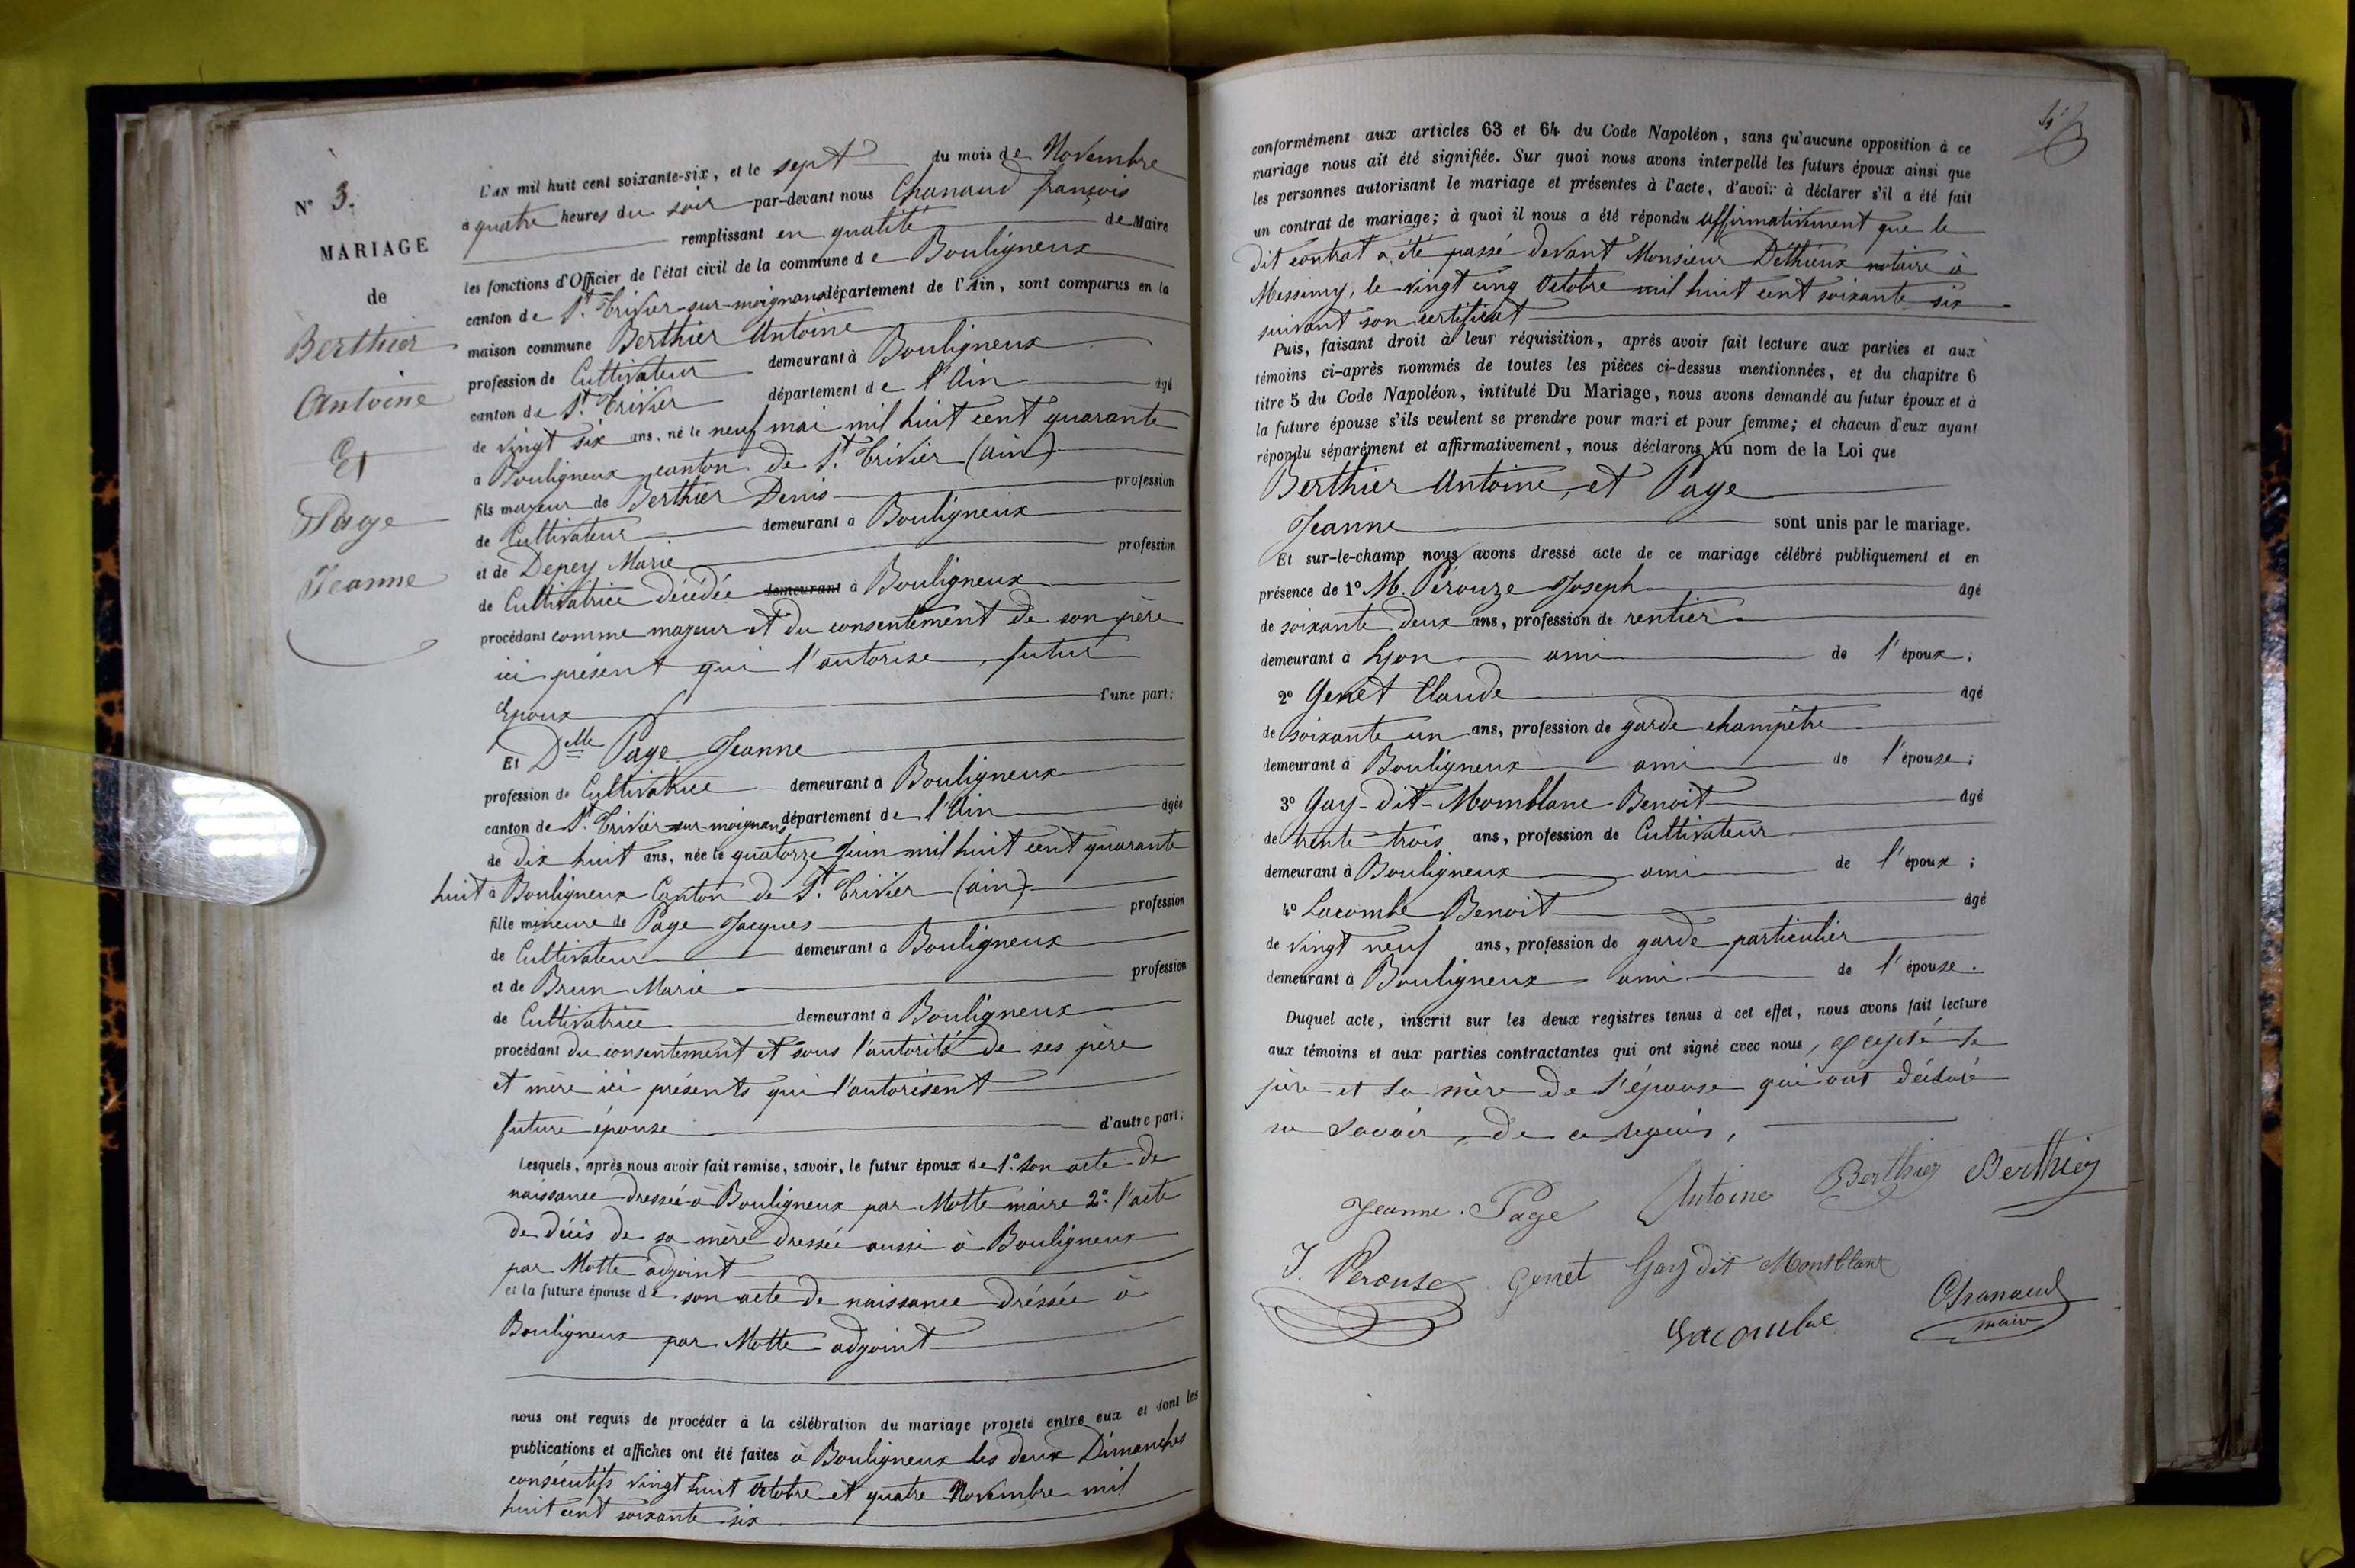 N° 3.
MARIAGE
de
Berthier
Antoine
Et
Page
Jeanne
L'AN mil huit cent soixante-six, et le sept du mois de Novembre
à quatre heures du soir par-devant nous Chanaud françois
remplissant en qualité de Maire
les fonctions d'Officier de l'état civil de la commune de Bouligneux
canton de St. Trivier-sur-moignans département de l'Ain, sont comparus en la
maison commune Berthier Antoine
profession de Cultivateur demeurant à Bouligneux
canton de St. Trivier département de l'Ain âgé
de vingt six ans, né le neuf mai mil huit cent quarante
à Bouligneux canton de St. Trivier (ain)
fils majeur de Berthier Denis profession
de Cultivateur demeurant à Bouligneux
et de Depey Marie profession
de Cultivatrice décédée demeurant à Bouligneux
procédant comme majeur et du consentement de son père
ici présent qui l'autorise futur
Epoux d'une part;
Et Delle Page Jeanne
profession de Cultivatrice demeurant à Bouligneux
canton de St. Trivier-sur-moignans département de l'Ain âgée
de dix huit ans, née le quatorze Juin mil huit cent quarante
huit à Bouligneux Canton de St. Trivier (ain)
fille mineure de Page Jacques profession
de Cultivateur demeurant à Bouligneux
et de Brun Marie profession
de Cultivatrice demeurant à Bouligneux
procédant du consentement et sous l'autorité de ses père
et mère ici présents qui l'autorisent
future épouse d'autre part;
Lesquels, après nous avoir fait remise, savoir, le futur époux de 1°. son acte de
naissance dressée à Bouligneux par Motte maire 2°. l'acte
de décès de sa mère dressée aussi à Bouligneux
par Motte adjoint
et la future épouse de son acte de naissance dréssée à
Bouligneux par Motte adjoint
nous ont requis de procéder à la célébration du mariage projeté entre eux et dont les
publications et affiches ont été faites à Bouligneux les deux Dimanches
consécutifs vingt huit Octobre et quatre Novembre mil
huit cent soixante six
conformément aux articles 63 et 64 du Code Napoléon, sans qu'aucune opposition à ce
mariage nous ait été signifiée. Sur quoi nous avons interpellé les futurs époux ainsi que
les personnes autorisant le mariage et présentes à l'acte, d'avoir à déclarer s'il a été fait
un contrat de mariage; à quoi il nous a été répondu affirmativement que le
dit contrat a été passé devant Monsieur Déthieux notaire à
Messimy, le vingt cinq Octobre mil huit cent soixante six
suivant son certificat
Puis, faisant droit à leur réquisition, après avoir fait lecture aux parties et aux
témoins ci-après nommés de toutes les pièces ci-dessus mentionnées, et du chapitre 6
titre 5 du Code Napoléon, intitulé Du Mariage, nous avons demandé au futur époux et à
la future épouse s'ils veulent se prendre pour mari et pour femme; et chacun d'eux ayant
répondu séparément et affirmativement, nous déclarons Au nom de la Loi que
Berthier Antoine et Page
Jeanne sont unis par le mariage.
Et sur-le-champ nous avons dressé acte de ce mariage célébré publiquement et en
présence de 1° M. Pérouze Joseph âgé
de soixante deux ans, profession de rentier
demeurant à Lyon ami de l'époux;
2° Genet Claude âgé
de soixante un ans, profession de garde champêtre
demeurant à Bouligneux ami de l'épouse;
3° Gay-dit-Momblanc Benoit âgé
de trente trois ans, profession de Cultivateur
demeurant à Bouligneux ami de l'époux;
4° Lacombe Benoit âgé
de vingt neuf ans, profession de garde particulier
demeurant à Bouligneux ami de l'épouse.
Duquel acte, inscrit sur les deux registres tenus à cet effet, nous avons fait lecture
aux témoins et aux parties contractantes qui ont signé avec nous, excepté le
père et la mère de l'épouse qui ont déclaré
ne savoir, de ce requis,
Jeanne. Page Antoine Berthier Berthier
J. Perouse Genet Gay dit Montblanc
Lacombe Chanaud
maire